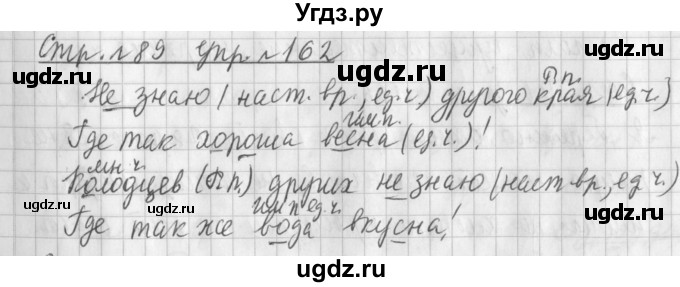 Угдз.ру
Стр. №89 упр. №162
П.п.
Не знаю (наст. вр., ед.ч.) другого края (ед.ч.)
им.п.
Где так хороша весна (ед.ч.)!
мн.ч.
Колодцев (П.п.) других не знаю (наст.вр., ед.ч.)
им.п ед.ч.
Где так же вода вкусна!
ugdz.ru
ugdz.ru
ugdz.ru
ugdz.ru
ugdz.ru
ugdz.ru
ugdz.ru
ugdz.ru
ugdz.ru
ugdz.ru
ugdz.ru